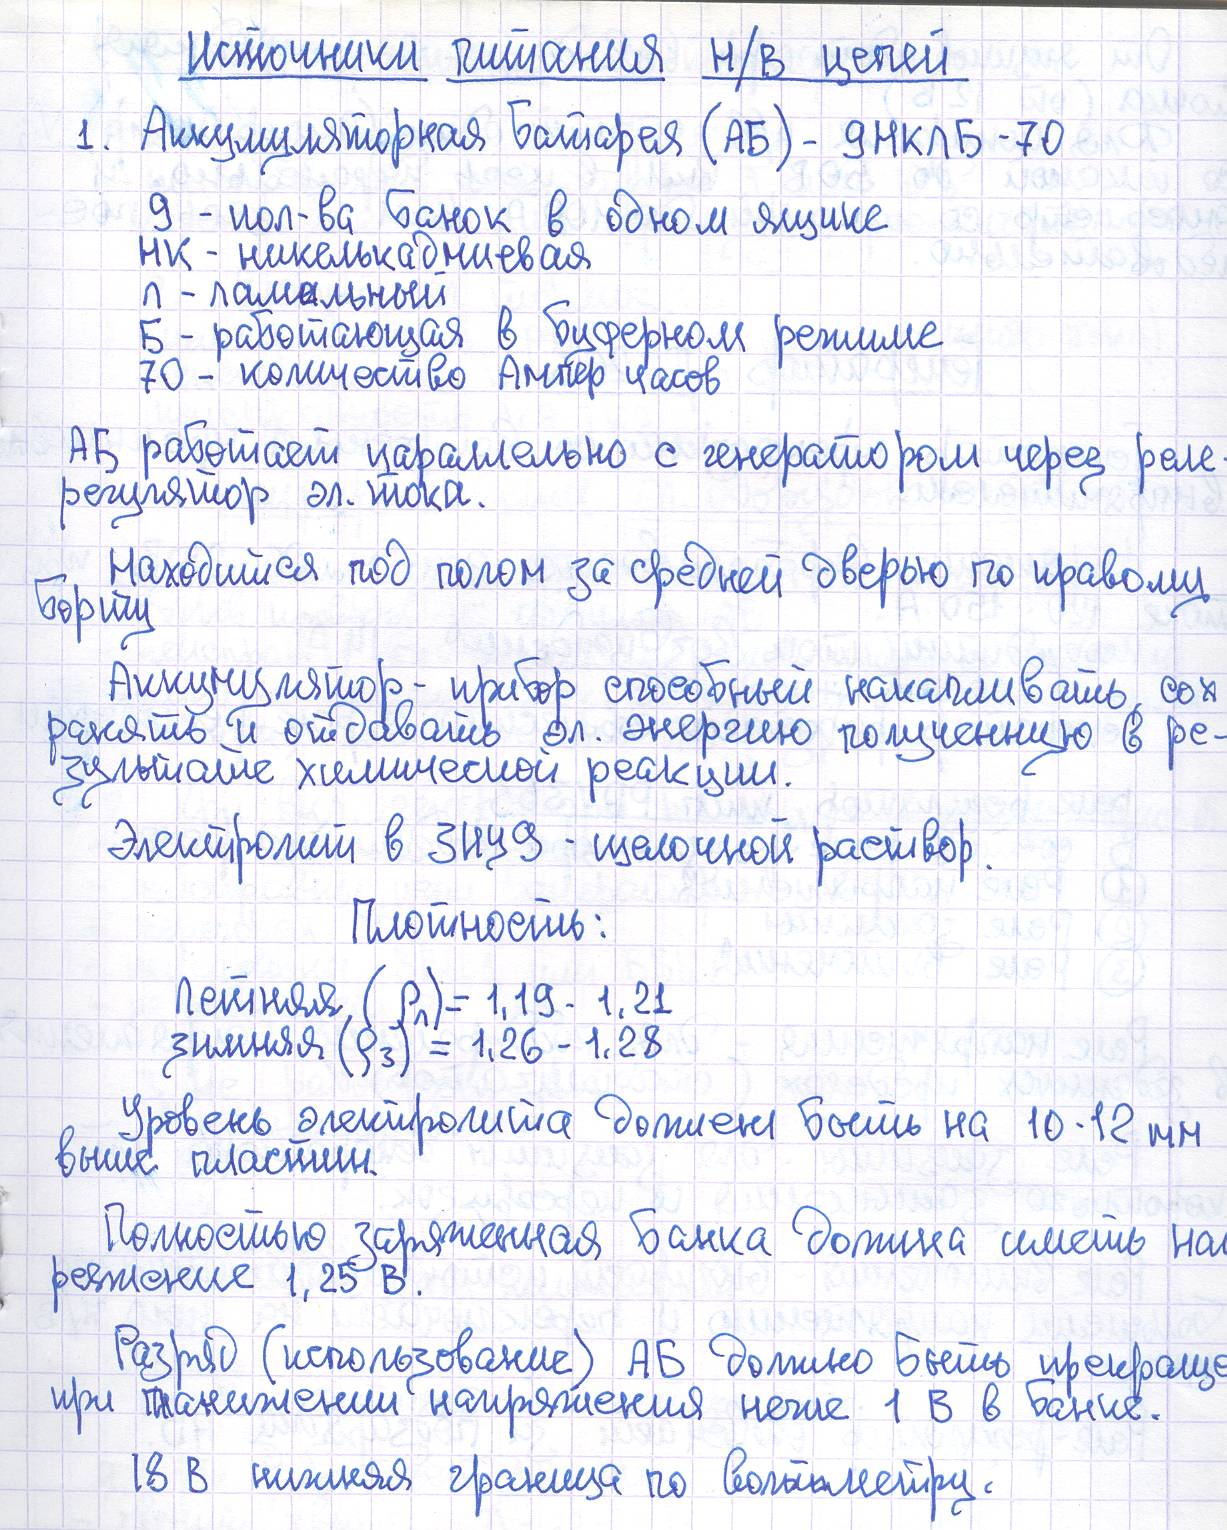 Источники питания н/в цепей
1. Аккумуляторная батарея (АБ) - 9НКЛБ-70
9 - кол-ва банок в одном ящике
НК - никелькадмиевая
Л - ламельный
Б - работающая в буферном режиме
70 - количество Ампер часов
АБ работает параллельно с генератором через реле-
регулятор эл. тока.
Находится под полом за средней дверью по правому
борту
Аккумулятор - прибор способный накапливать, сох
ранять и отдавать эл. энергию полученную в ре-
зультате химической реакции.
Электролит в ЗИУ9 - щелочной раствор.
Плотность:
Летняя (ρл) = 1,19 - 1,21
зимняя (ρз) = 1,26 - 1,28
Уровень электролита должен быть на 10-12 мм
выше пластин.
Полностью заряженная банка должна иметь нап
ряжение 1,25 В.
Разряд (использование) АБ должно быть прекраще
при понижении напряжения ниже 1 В в банке.
18 В нижняя граница по вольтметру.